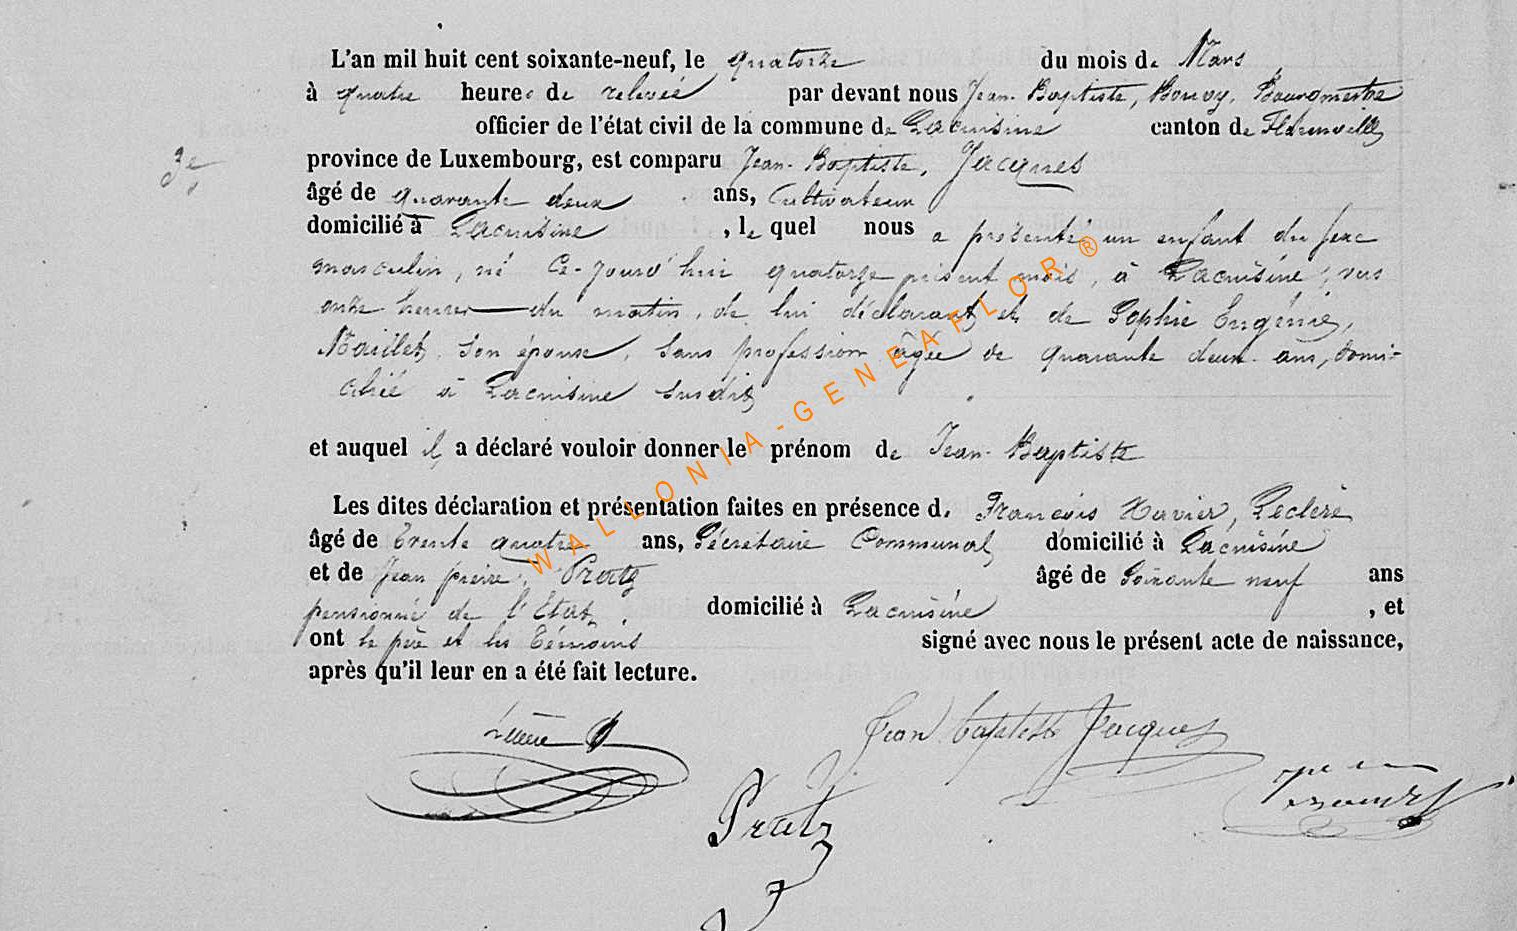 L'an mil huit cent soixante-neuf, le quatorze du mois de Mars
à quatre heures de relevée par devant nous Jean-Baptiste, Bouvy, Bourgmestre
officier de l'état civil de la commune de Lacuisine canton de Florenville
3e
province de Luxembourg, est comparu Jean-Baptiste, Jacques
âgé de quarante deux ans, Cultivateur
domicilié à Lacuisine, lequel nous a présenté un enfant du sexe
masculin, né ce-jourd'hui quatorze présent mois, à Lacuisine, vers
onze heures du matin, de lui déclarant et de Sophie Eugénie,
Maillet, son épouse, sans profession âgée de quarante deux ans, domi-
ciliée à Lacuisine susdit
et auquel il a déclaré vouloir donner le prénom de Jean-Baptiste
Les dites déclaration et présentation faites en présence de François Xavier, Leclère
âgé de trente quatre ans, Sécrétaire Communal domicilié à Lacuisine
et de Jean pierre, Pratz âgé de soixante neuf ans
pensionné de l'Etat, domicilié à Lacuisine, et
ont le père et les témoins signé avec nous le présent acte de naissance,
après qu'il leur en a été fait lecture.
Jean baptiste Jacques
Pratz
WALLONIA-GENEAFLOR®